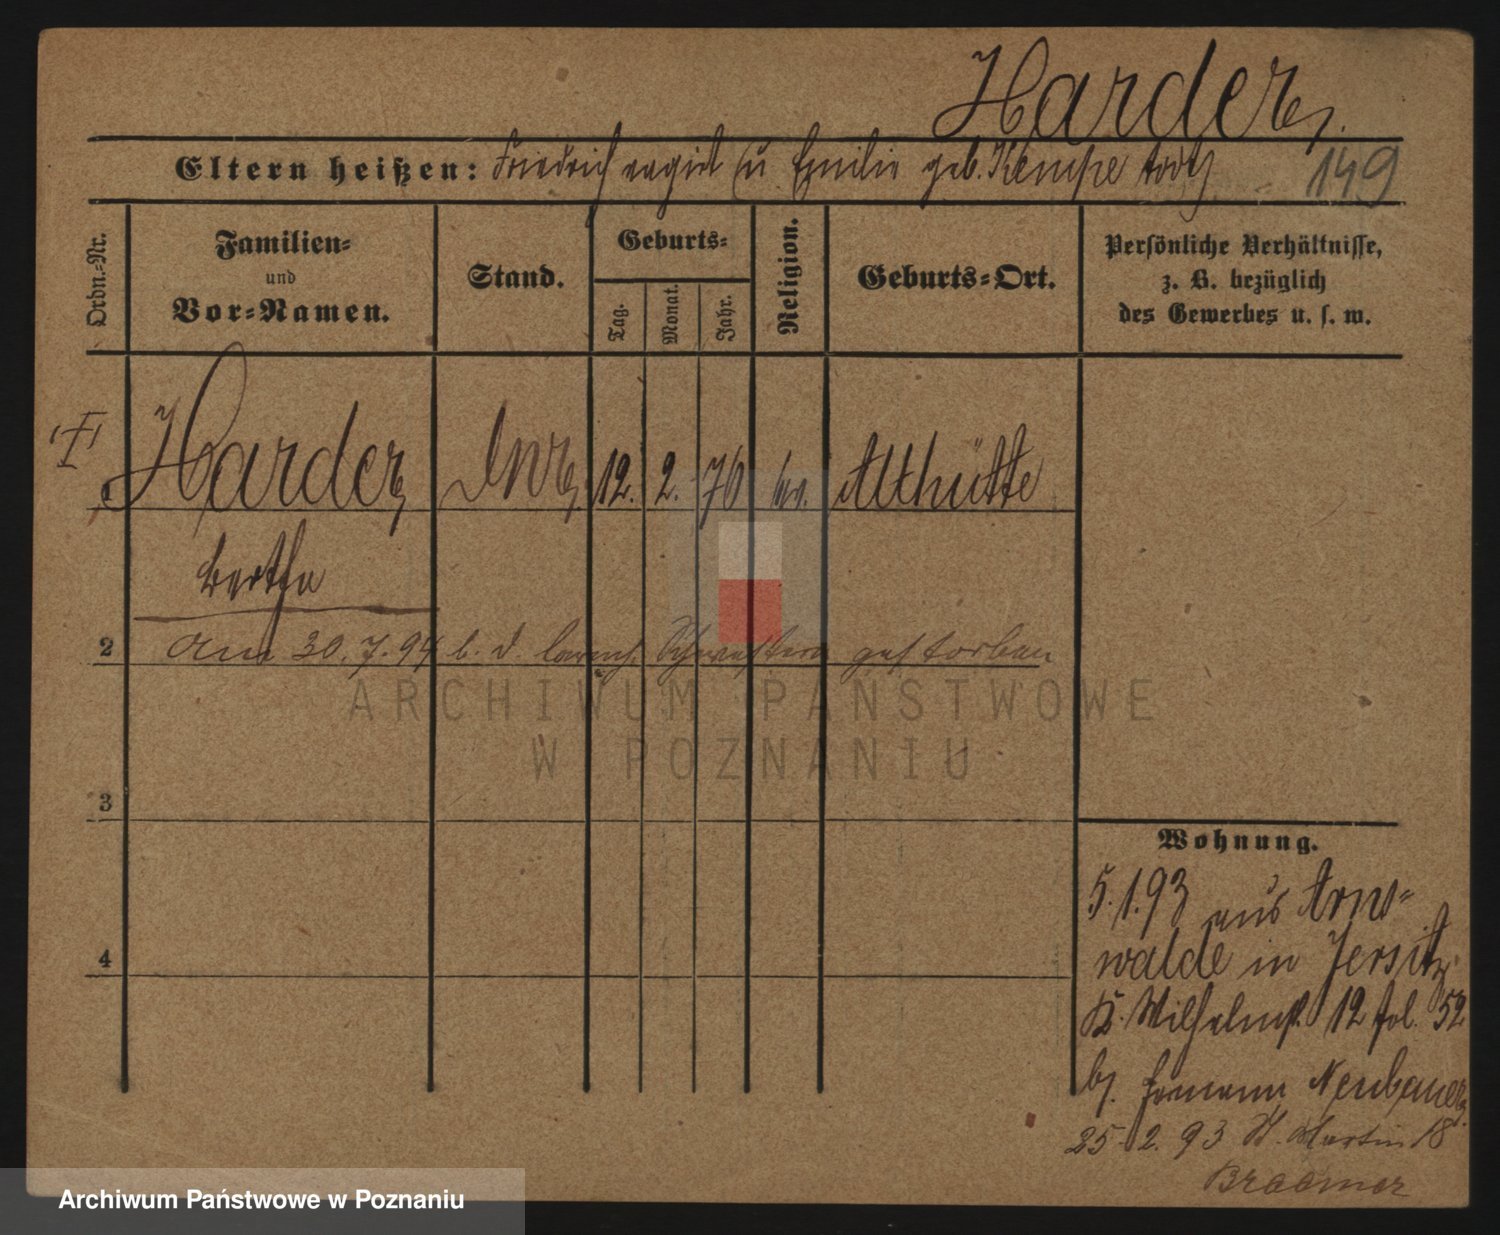 Harder
Eltern heißen: Friedrich u Emilie geb. Kempe todt 149
Ordn.-Nr.
Familien-
und
Vor-Namen.
Stand.
Geburts-
Tag.
Monat.
Jahr.
Religion.
Geburts-Ort.
Persönliche Verhältnisse,
z. B. bezüglich
des Gewerbes u. s. w.
1 Harder 12. 2. 70 ev. Althütte
Bertha
2 am 30. 7. 94 b. d. barmh. Schwestern gestorben
ARCHIWUM PAŃSTWOWE
W POZNANIU
3
4
Wohnung.
5.1.93 aus Arns-
walde in Jersitz
K. Wilhelmst. 12 fol. 52
b. Hermann Neubauer
25. 2. 93 St. Martin 18
Archiwum Państwowe w Poznaniu